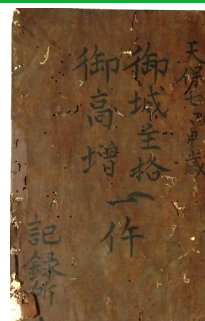 天保七丙申歳
御城主格
御高増一件
記録所